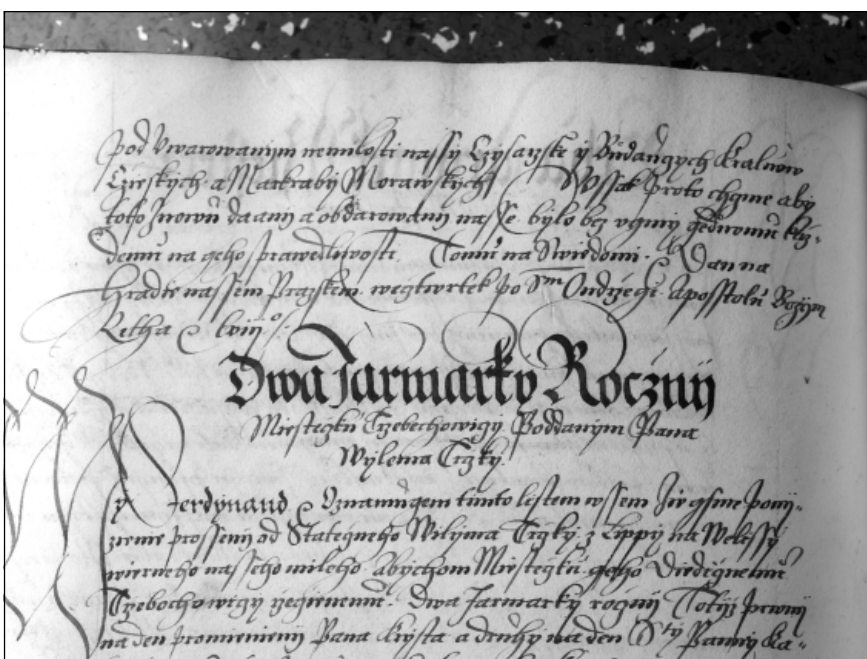 pod Uwarowanim nemilosti nassy Czysarzske y Budaucych Kraluow
Czieskych a Markraby Morawskych Wssak proto chceme aby
toto znowu daani a obdarowani nasse bylo bez ugmy gednomu kaz-
demu na geho sprawedlnosti. Tomu na Swiedomi. Dan na
Hradie nassem Prazskem. wcztwrtek po Stm Ondrzegi Aposstolu Bozym
Letha &c lviijo
Dwa Jarmarky Roczny
Miestegku Trzebechowigy Poddanym Pana
Wylema Trczky.
My Ferdynand &c Oznamugem timto listem wssem Jie gsme pony-
zienie prosseny od Stateczneho Wilyma Trczky z Lippy na Welissy
wierneho nasseho mileho abychom Miestegku geho Diedicznemu
Trzebochowigy rzecenemu. Dwa Jarmarky roczny Totiz prwny
na den promieneny Pana Krysta a druhy na den Sty Panny Ka-